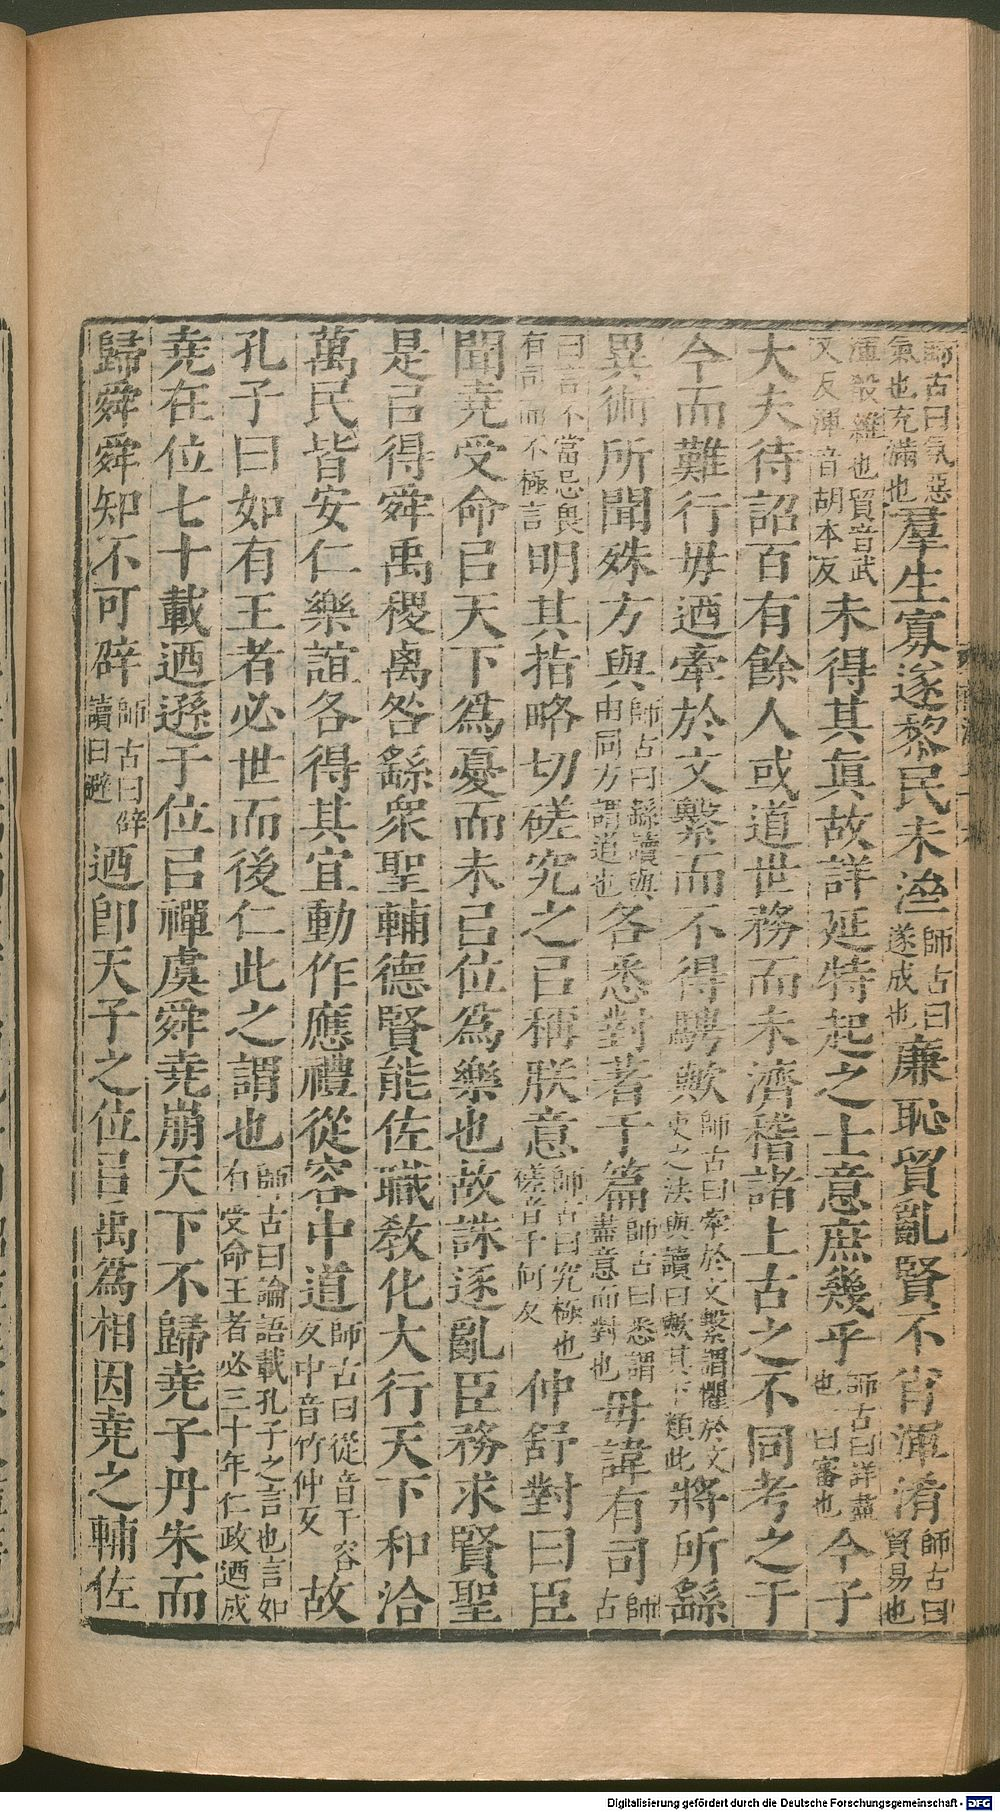 師古曰氛惡氣也充滿也羣生寡遂黎民未濟師古曰遂成也廉恥貿亂賢不肖渾淆師古曰貿易也
渾殽雜也貿音武又反渾音胡本反未得其真故詳延特起之士意庶幾乎師古曰詳盡也一曰審也今子
大夫待詔百有餘人或道世務而未濟稽諸上古之不同考之于
今而難行毋迺牽於文繫而不得騁歟師古曰牽於文繫謂懼於文吏之法與讀曰歟其下類此將所繇
異術所聞殊方與師古曰繇讀與由同方謂道也各悉對著于篇師古曰悉謂盡意而對也毋諱有司師古
曰言不當忌畏有司而不極言明其指略切磋究之㠯稱朕意師古曰究極也磋音千何反仲舒對曰臣
聞堯受命㠯天下爲憂而未㠯位爲樂也故誅逐亂臣務求賢聖
是㠯得舜禹稷卨咎繇衆聖輔德賢能佐職教化大行天下和洽
萬民皆安仁樂誼各得其宜動作應禮從容中道師古曰從音千容反中音竹仲反故
孔子曰如有王者必世而後仁此之謂也師古曰論語載孔子之言也言如有受命王者必三十年仁政迺成
堯在位七十載迺遜于位㠯禪虞舜堯崩天下不歸堯子丹朱而
歸舜舜知不可辟師古曰辟讀曰避迺卽天子之位㠯禹爲相因堯之輔佐
Digitalisierung gefördert durch die Deutsche Forschungsgemeinschaft - DFG